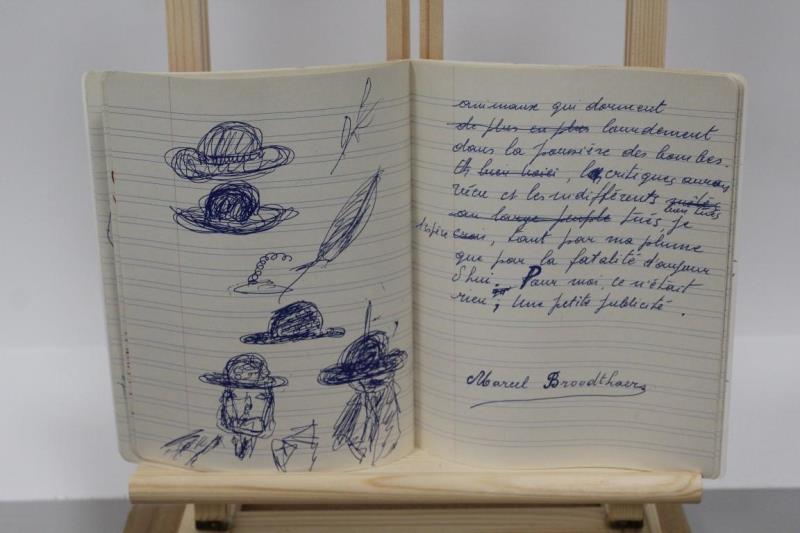 animaux qui dorment
de plus en plus lourdement
dans la poussière des bombes.
Et bien voici, les critiques auront
vécu et les indifférents mêlés
bien tués
au large peuple tués je
crois, tant par ma plume
espère
que par la fatalité d'aujour
d'hui. Pour moi, ce n'était
rien; Une petite publicité.
Marcel Broodthaers